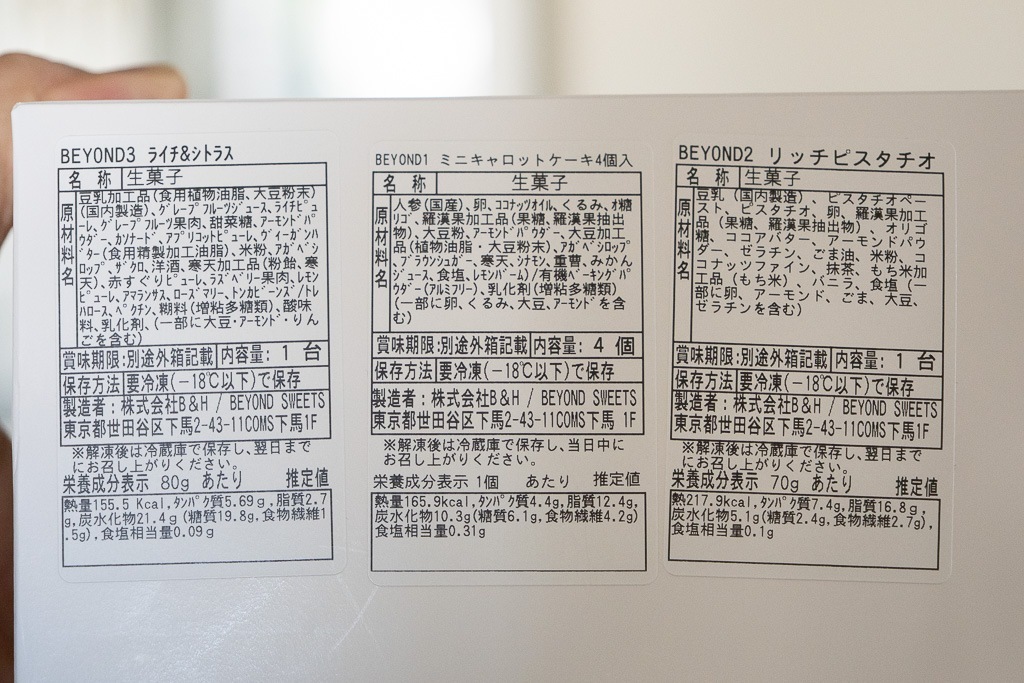 BEYOND3 ライチ&シトラス
名 称 生菓子
原材料名
豆乳加工品(食用植物油脂、大豆粉末)
(国内製造)、グレープフルーツジュース、ライチピュ
ーレ、グレープフルーツ果肉、甜菜糖、アーモンドパ
ウダー、カソナード、アプリコットピューレ、ヴィーガンバ
ター(食用精製加工油脂)、米粉、アガベシ
ロップ、ザクロ、洋酒、寒天加工品(粉飴、寒
天)、赤すぐりピューレ、ラズベリー果肉、レモン
ピューレ、アマランサス、ローズマリー、トンカビーンズ/トレ
ハロース、ペクチン、糊料(増粘多糖類)、酸味
料、乳化剤、(一部に大豆・アーモンド・りん
ごを含む)
賞味期限:別途外箱記載 内容量: 1 台
保存方法 要冷凍(-18℃以下)で保存
製造者:株式会社B&H / BEYOND SWEETS
東京都世田谷区下馬2-43-11COMS下馬1F
※解凍後は冷蔵庫で保存し、翌日まで
にお召し上がりください。
栄養成分表示 80g あたり 推定値
熱量155.5 Kcal,タンパク質5.69g,脂質2.7
g,炭水化物21.4g(糖質19.8g,食物繊維1
.5g),食塩相当量0.09g
BEYOND1 ミニキャロットケーキ4個入
名 称 生菓子
原材料名
人参(国産)、卵、ココナッツオイル、くるみ、オ糖
リゴ、羅漢果加工品(果糖、羅漢果抽出
物)、大豆粉、アーモンドパウダー、大豆加工
品(植物油脂・大豆粉末)、アガベシロップ
、ブラウンシュガー、寒天、シナモン、重曹、みかん
ジュース、食塩、レモンバーム)/有機ベーキングパ
ウダー(アルミフリー)、乳化剤(増粘多糖類)
(一部に卵、くるみ、大豆、アーモンドを含
む)
賞味期限:別途外箱記載 内容量: 4 個
保存方法 要冷凍(-18℃以下)で保存
製造者:株式会社B&H / BEYOND SWEETS
東京都世田谷区下馬2-43-11COMS下馬1F
※解凍後は冷蔵庫で保存し、当日中に
お召し上がりください。
栄養成分表示 1個 あたり 推定値
熱量165.9kcal,タンパク質4.4g,脂質12.4g,
炭水化物10.3g(糖質6.1g,食物繊維4.2g)
食塩相当量0.31g
BEYOND2 リッチピスタチオ
名 称 生菓子
原材料名
豆乳(国内製造)、ピスタチオペー
スト、ピスタチオ、卵、羅漢果加工
品(果糖、羅漢果抽出物)、オリゴ
糖、ココアバター、アーモンドパウ
ダー、ゼラチン、ごま油、米粉、コ
コナッツファイン、抹茶、もち米加
工品(もち米)、バニラ、食塩(一
部に卵、アーモンド、ごま、大豆、
ゼラチンを含む)
賞味期限:別途外箱記載 内容量: 1 台
保存方法 要冷凍(-18℃以下)で保存
製造者:株式会社B&H / BEYOND SWEETS
東京都世田谷区下馬2-43-11COMS下馬1F
※解凍後は冷蔵庫で保存し、翌日まで
にお召し上がりください。
栄養成分表示 70g あたり 推定値
熱217.9kcal,タンパク質7.4g,脂質16.8g,
炭水化物5.1g(糖質2.4g,食物繊維2.7g),
食塩相当量0.1g